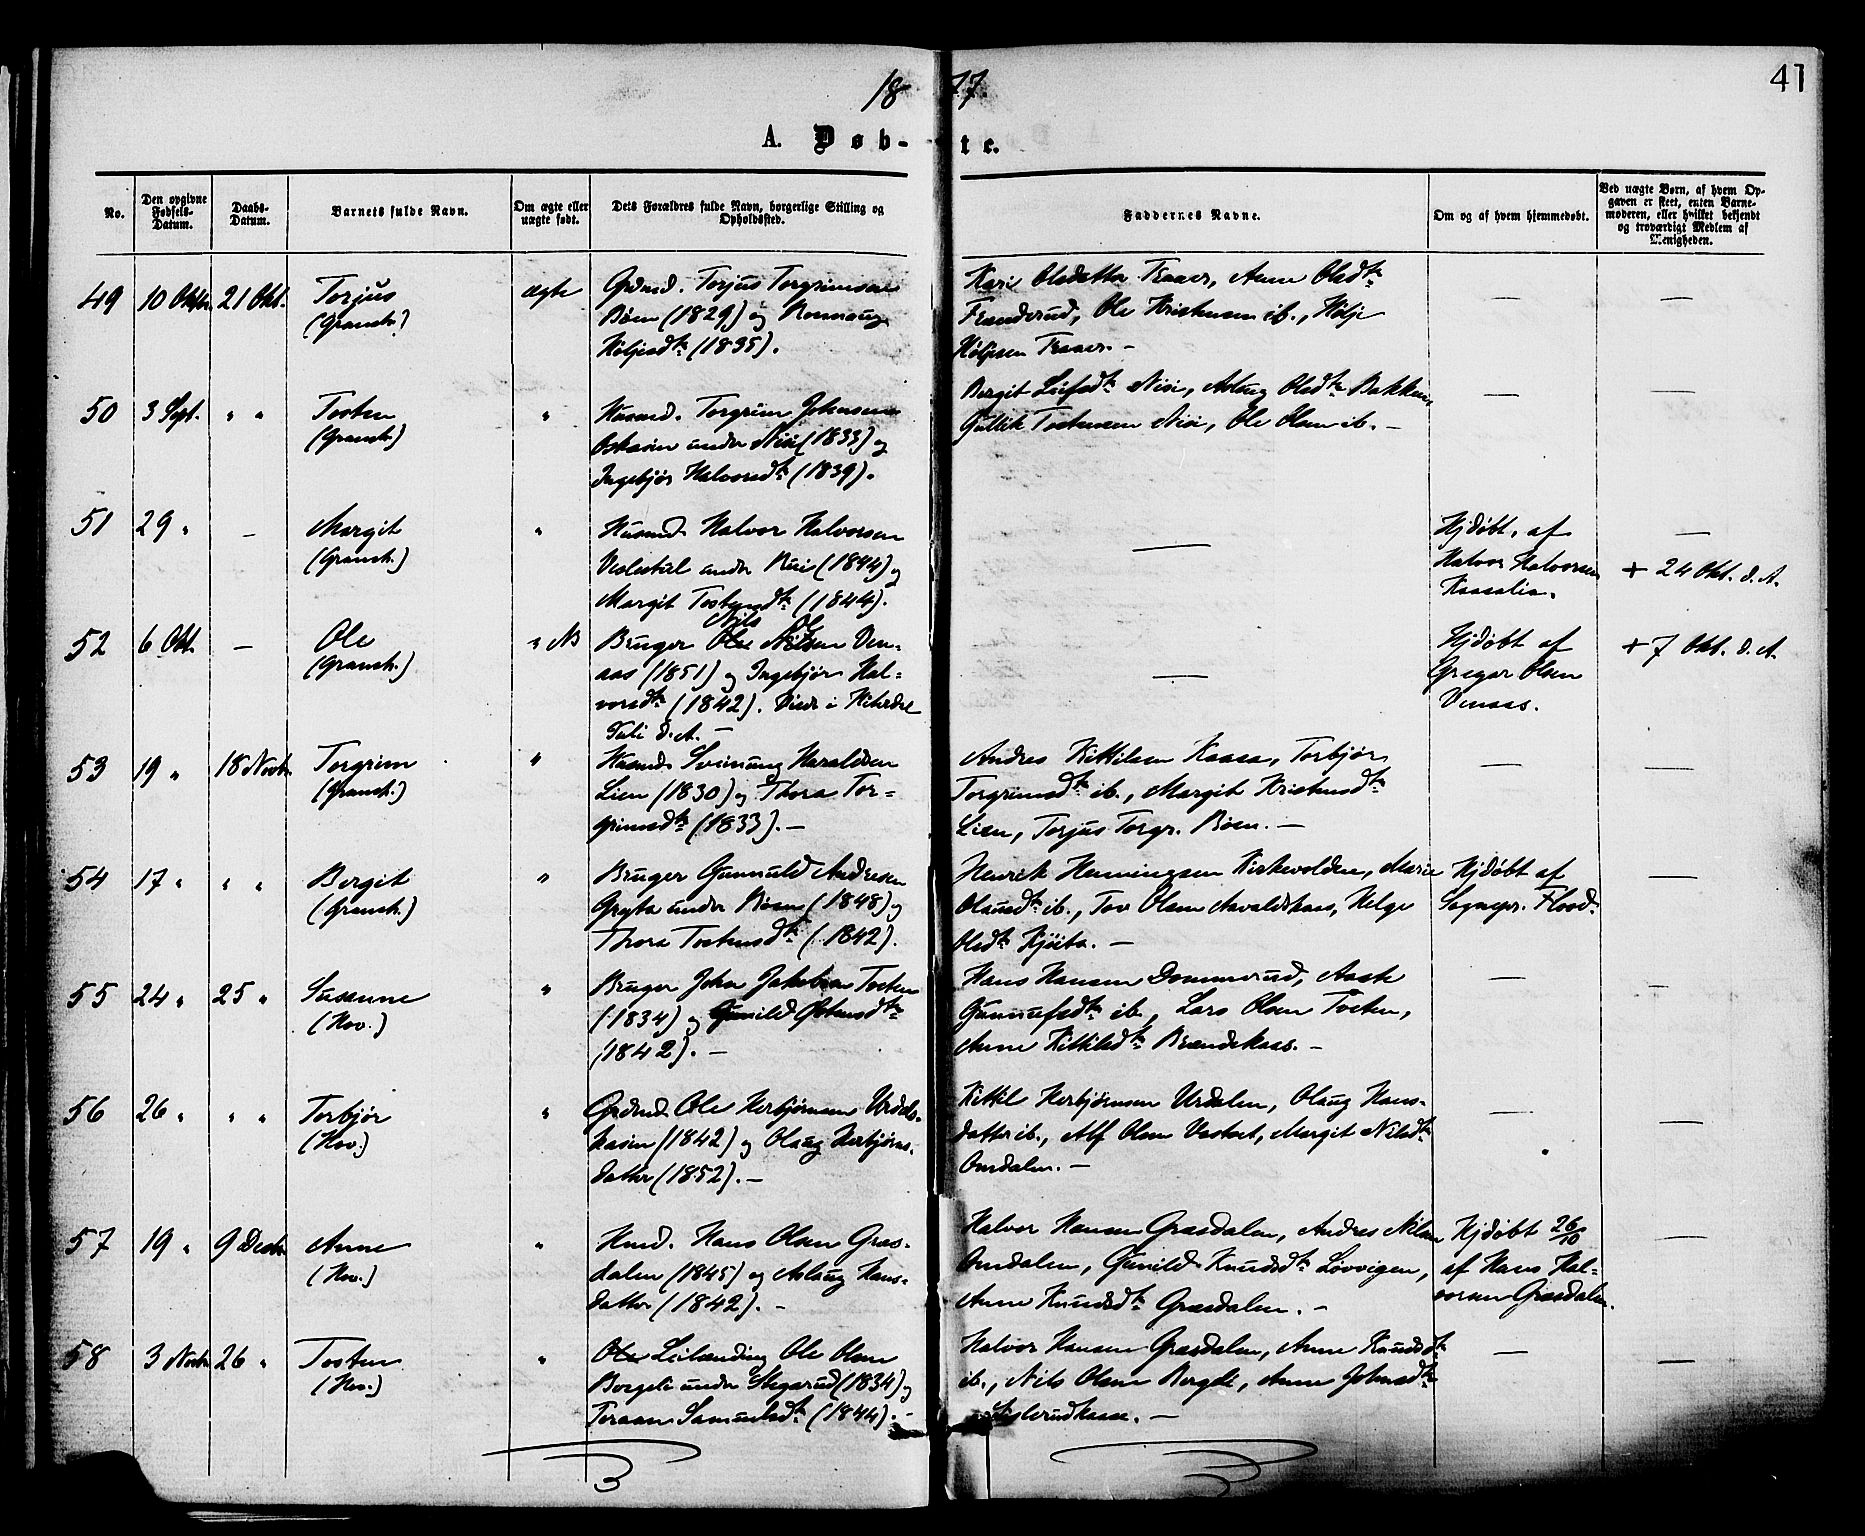 1877.
41
A. Døbte.
No.
Den opgivne Fødsels-Datum.
Daabs-Datum.
Barnets fulde Navn.
Om ægte eller uægte født.
Dets Forældres fulde Navn, borgerlige Stilling og Opholdssted.
Faddernes Navne.
Om og af hvem hjemmedøbt.
Ved uægte Børn, af hvem Opgaven er skeet, enten Barnemoderen, eller hvilket bekjendt og troværdigt Medlem af Menigheden.
49 10 Oktbr. 21 Okt. Torjus ægte Grdmd. Torjus Torgrimsen
(Gransh.) Bøen (1829) og Ronnaug
Høljesdtr (1835).
Kari Olsdatter Traaer, Anne Olsdtr
Frønderud, Ole Kristensen ib., Hølje
Høljesen Traaer. —
— —
50 3 Sept. " " Tosten " Husmd. Torgrim Johnsen
(Gransh.) under Nisi (1833) og
Ingebjør Halvorsdtr (1839).
Bergit Leifsdtr Nisi, Aslaug Olsdtr Bakken,
Gullik Tostensen Nisi, Ole Olsen ib. —
— —
51 29 " — Margit " Husmd. Halvor Halvorsen
(Gransh.) under (1844) og
Margit Tostensdtr (1844).
—
Hjdøbt. af
Halvor Halvorsen
Kaasalia.
—
+ 24 Okt. d. A.
52 6 Okt. — Ole " NB Bruger Nils Olsen Ven-
(Gransh.) aas (1851) og Ingebjør Hal-
vorsdtr (1842). Viede i Hitterdal
Juli d. A. —
—
Hjdøbt af
Gregar Olsen
Venaas.
+ 7 Okt. d. A.
53 19 " 18 Novbr. Torgrim " Husmd. Sveinung Haraldsen
(Gransh.) Lien (1830) og Thora Tor-
grimsdtr (1833). —
Andres Kittilsen Kaasa, Torbjør
Torgrimsdtr ib., Margit Kristensdtr
Lien, Torjus Torgr. Bøen. —
— —
54 17 " " " Bergit " Bruger Gunnuld Andresen
(Gransh.) Gryta under Bøen (1848) og
Thora Tostensdtr (1842).
Henrik Henningsen Kirkevolden, Marie
Olausdtr ib., Tov Olsen Aavaldskaas, Helge
Olsdtr Kjøita. —
Hjdøbt af
Sognepr. Flood.
—
55 24 " 25 " Susanne " Bruger John Jakobsen Tosten
(Hov.) (1834) og Gunild Østensdtr
(1842). —
Hans Hansen Dommerud, Aaste
Gunnufsdtr ib., Lars Olsen Tosten,
Anne Kittilsdtr Brændekaas. —
— —
56 26 " " " Torbjør " Grdmd. Ole Herbjørnsen Urdals-
(Hov.) kaasen (1842) og Olaug Herbjørns-
datter (1852). —
Kittil Herbjørnsen Urdalen, Olaug Hans-
datter ib., Alf Olsen Vastvet, Margit Nilsdtr
Omdalen. —
— —
57 19 " 9 Decbr. Anne " Hmd. Hans Olsen Græs-
(Hov.) dalen (1845) og Aslaug Hans-
datter (1842). —
Halvor Hansen Græsdalen, Andres Nilsen
Omdalen, Gunild Knudsdtr Løvvigen,
Anne Knudsdtr Græsdalen. —
Hjdøbt 26/10
af Hans Hal-
vorsen Græsdalen.
—
58 3 Novbr. 26 " Tosten " Leilænding Ole Olsen
(Hov.) Bergeli under Stigerud (1834) og
Toraan Samuelsdtr (1844). —
Halvor Hansen Græsdalen, Anne Knudsdtr
ib., Nils Olsen Bergeli, Anne Johnsdtr
—
— —